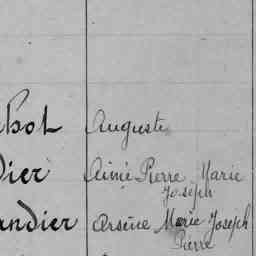 bhot Auguste
dier Aimé Pierre Marie
Joseph
andier Arsène Marie Joseph
Pierre